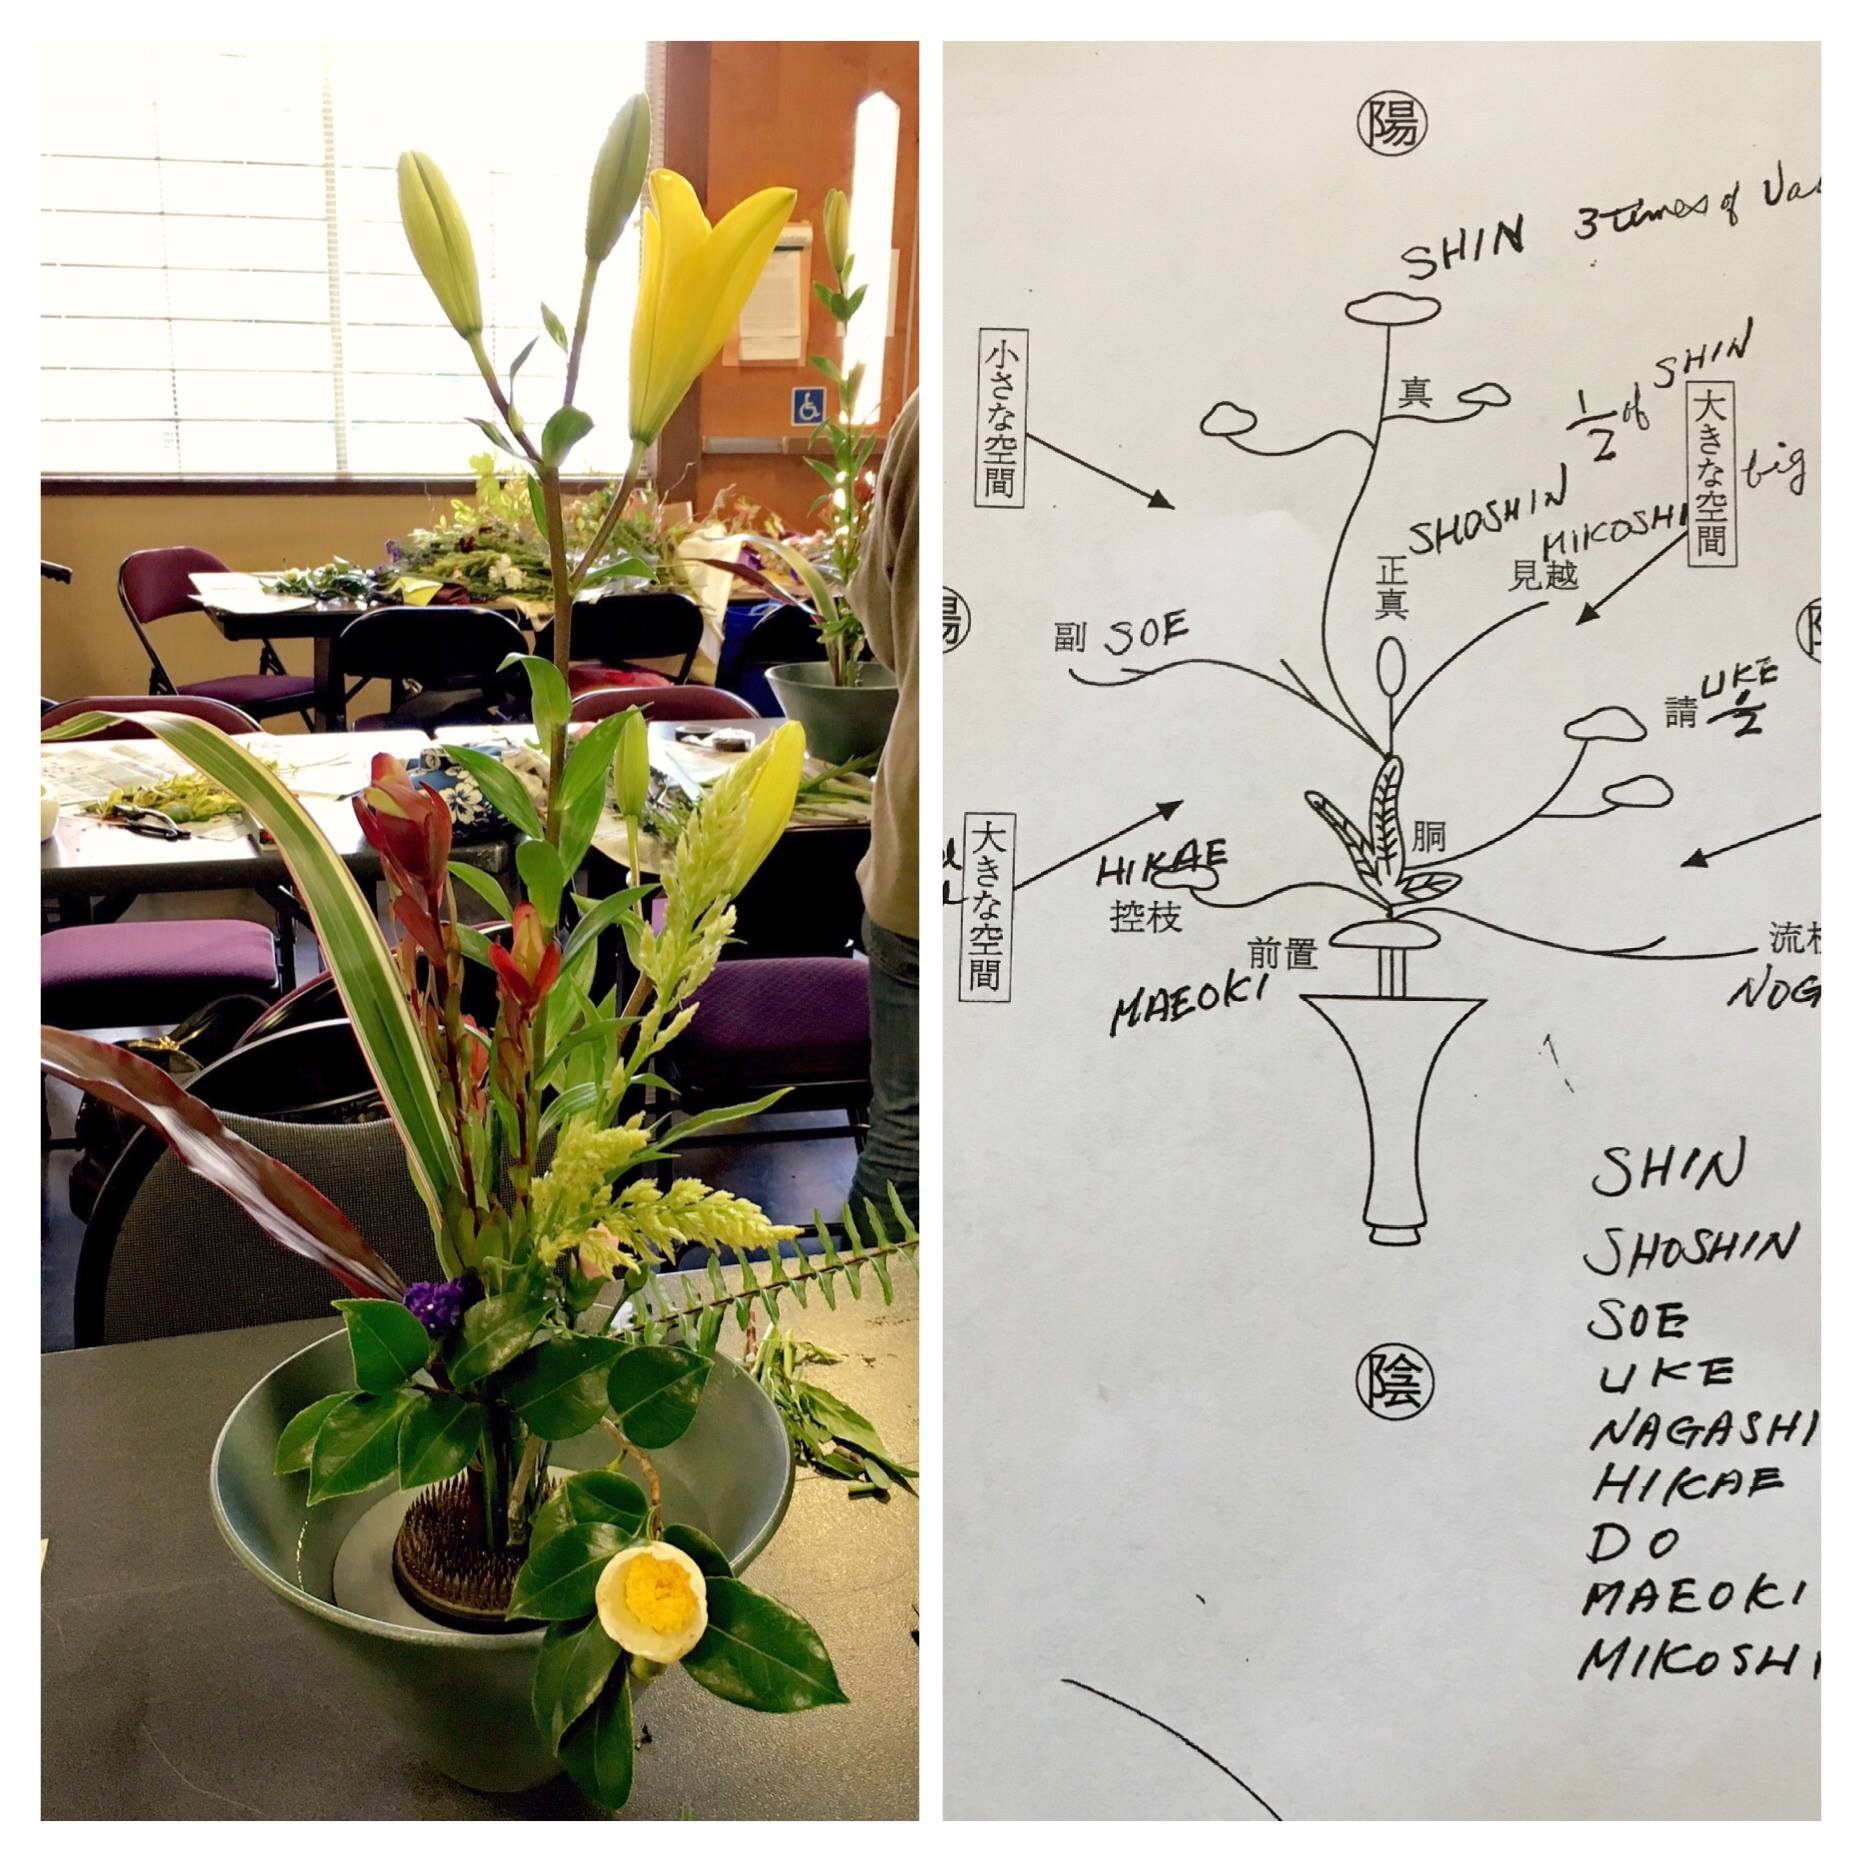 陽
SHIN 3 times of
小さな空間
真
1/2 of SHIN
大きな空間
big
SHOSHIN
正真
MIKOSHI
見越
副 SOE
請
UKE 1/2
大きな空間
胴
HIKAE
控枝
前置
MAEOKI
流
NOG
陰
SHIN
SHOSHIN
SOE
UKE
NAGASHI
HIKAE
DO
MAEOKI
MIKOSHI